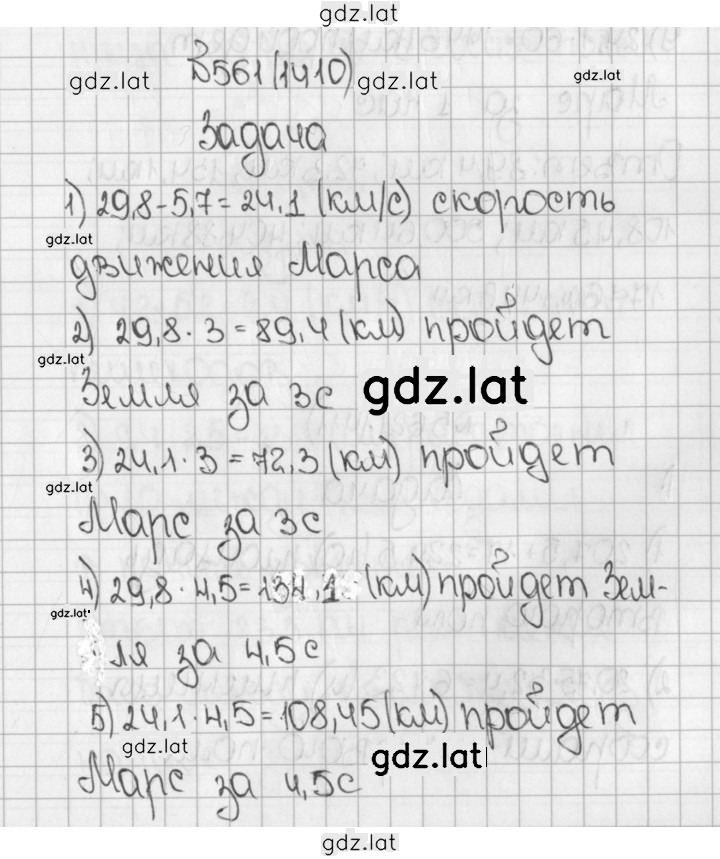 gdz.lat
№561(1410)
gdz.lat gdz.lat gdz.lat
Задача
1) 29,8-5,7=24,1 (км/с) скорость
gdz.lat
движения Марса
2) 29,8·3=89,4(км) пройдет
gdz.lat
Земля за 3с gdz.lat
3) 24,1·3=72,3(км) пройдет
gdz.lat
Марс за 3с
4) 29,8·4,5=134,1 (км) пройдет Зем-
gdz.lat
ля за 4,5с
5) 24,1·4,5=108,45(км) пройдет
gdz.lat gdz.lat
Марс за 4,5с
gdz.lat